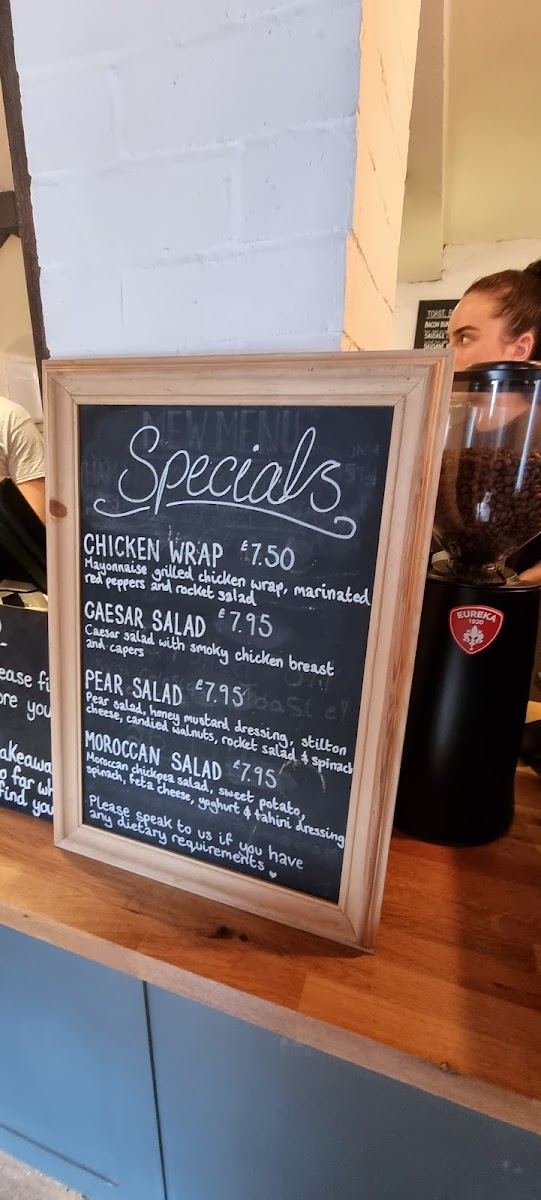 NEW MENU
Specials
CHICKEN WRAP £7.50
Mayonnaise grilled chicken wrap, marinated
red peppers and rocket salad
CAESAR SALAD £7.95
Caesar salad with smoky chicken breast
and capers
PEAR SALAD £7.95
Pear salad, honey mustard dressing, stilton
cheese, candied walnuts, rocket salad & spinach
MOROCCAN SALAD £7.95
Moroccan chickpea salad, sweet potato,
spinach, feta cheese, yoghurt & tahini dressing
Please speak to us if you have
any dietary requirements
EUREKA
1920
TOAST,
BACON
you
find you